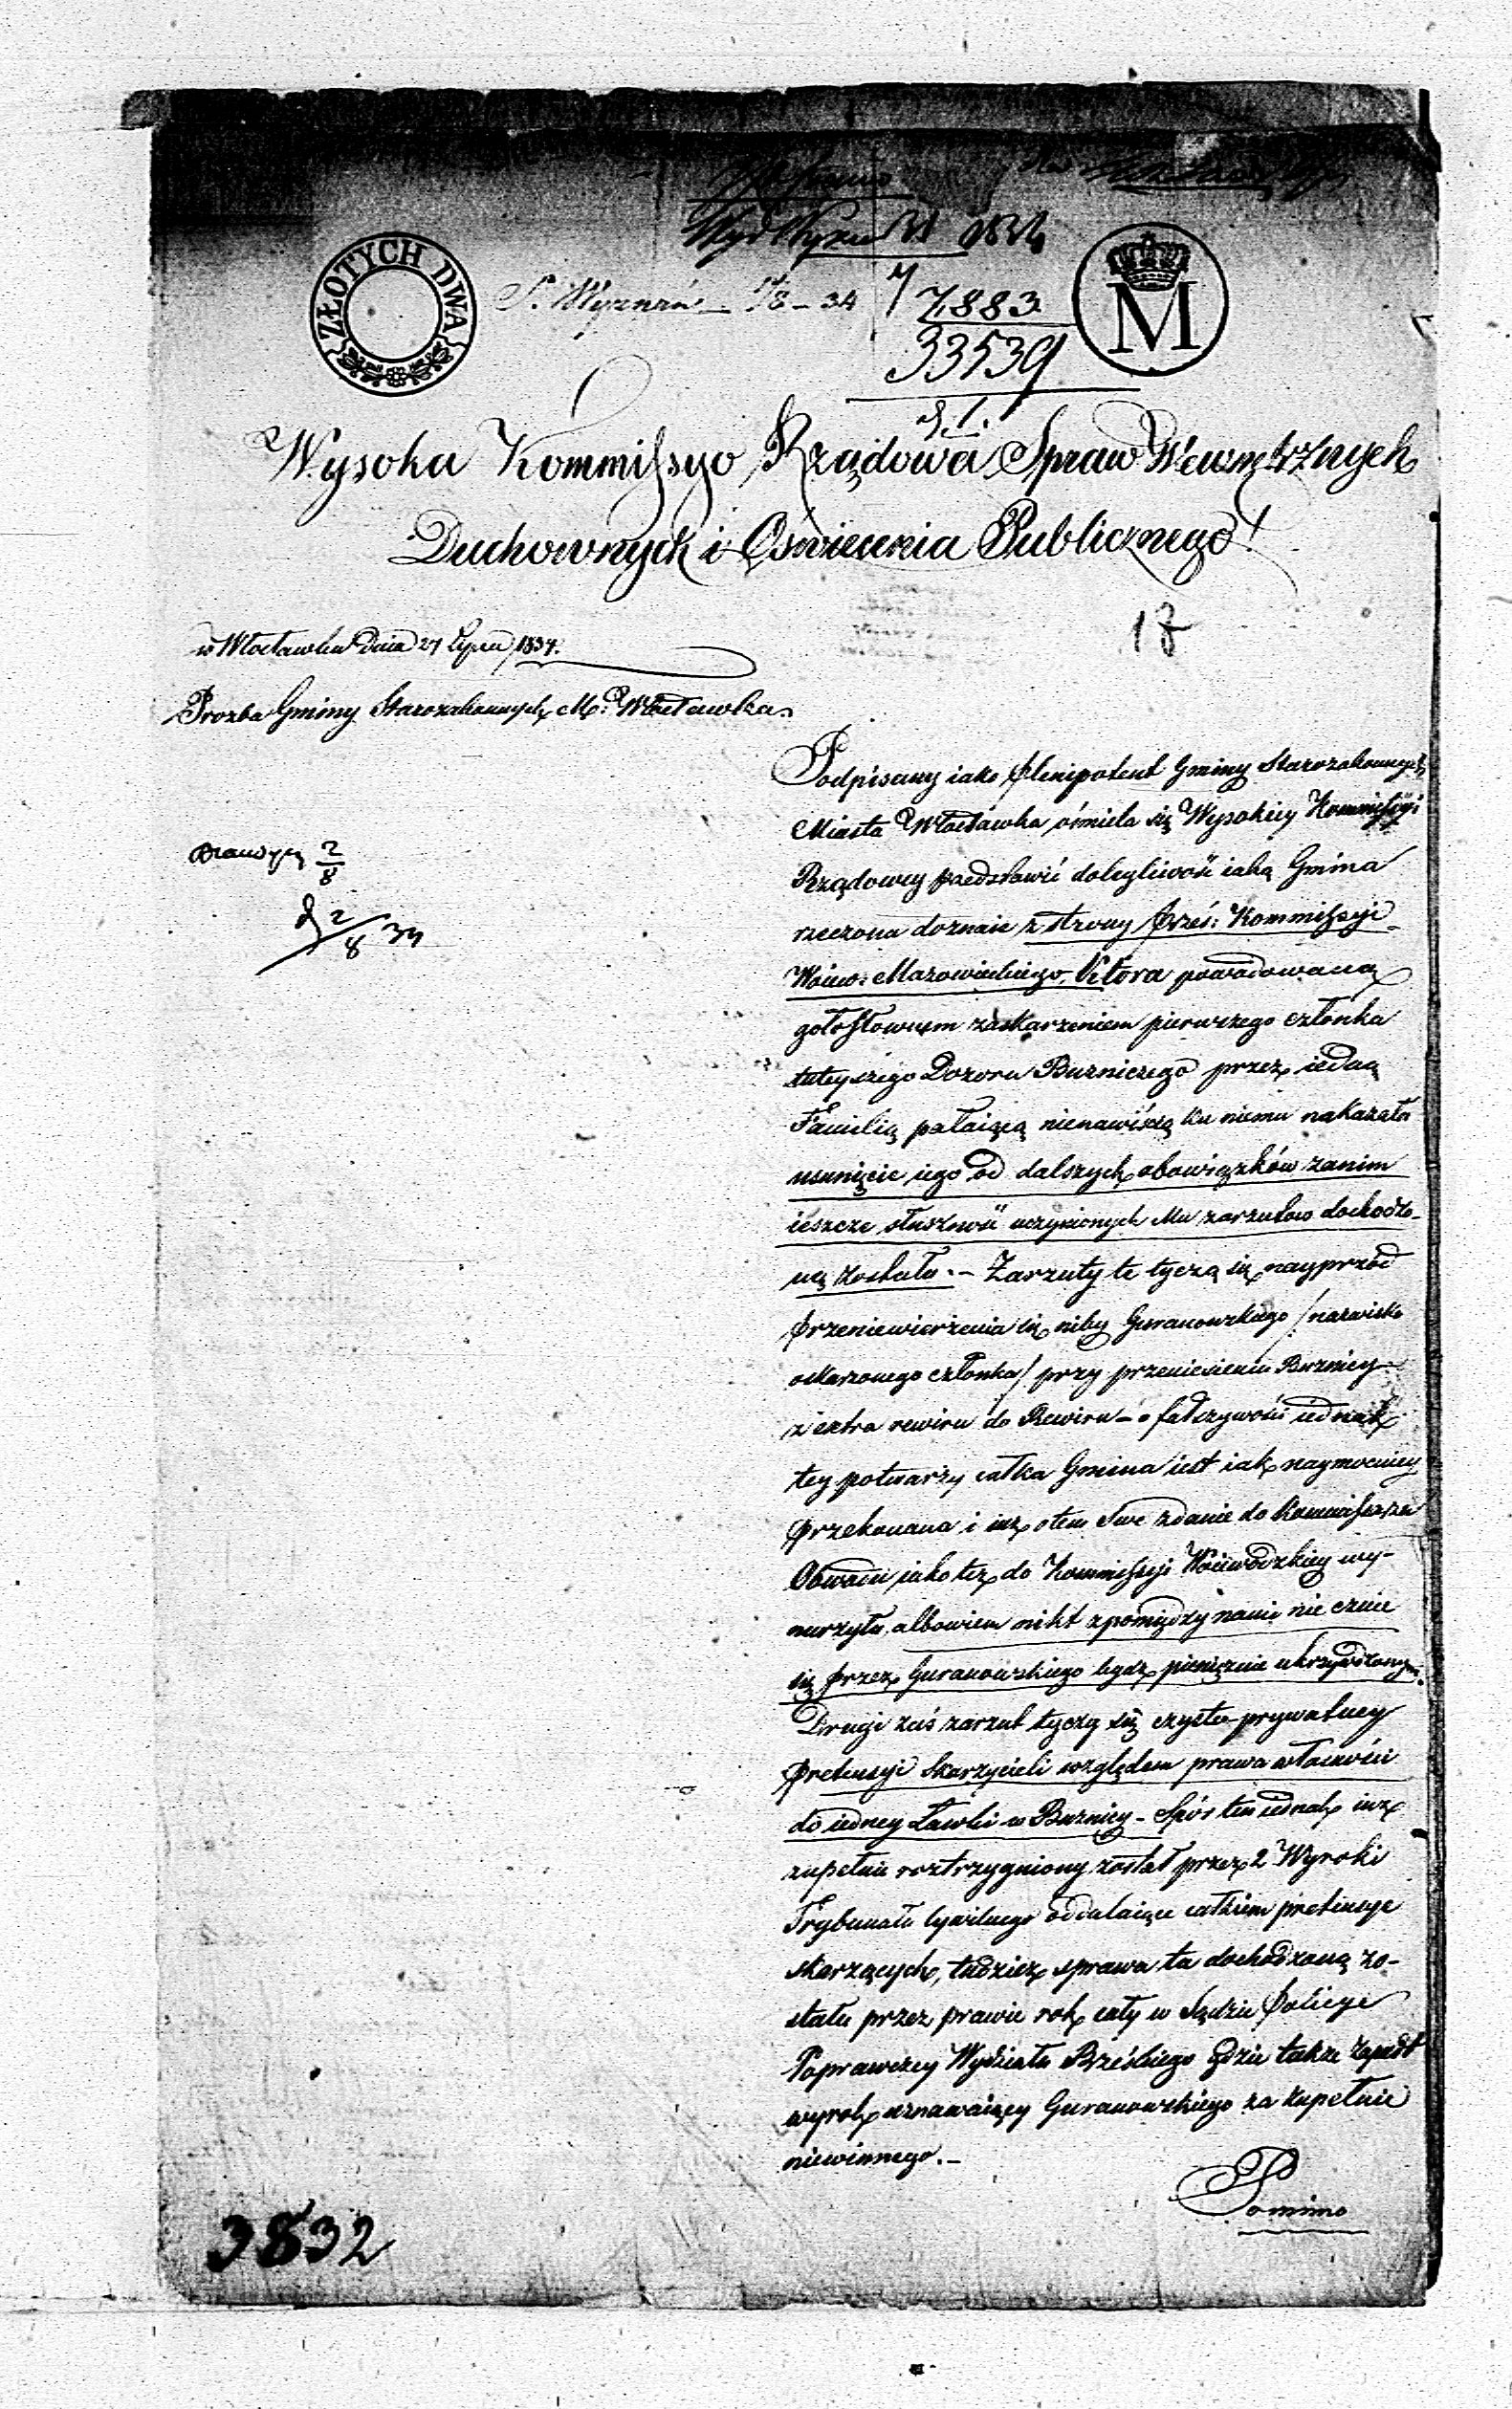 Wyd Wyzn 31 1834
ZŁOTYCH DWA
S. Wyznań 1/8 - 34
7883
33539
M
Wysoka Kommissyo Rządowa Spraw Wewnętrznych
Duchownych i Oświecenia Publicznego!
17
w Włocławku dnia 27 Lipca 1834.
Prozba Gminy Starozakonnych M. Włocławka.
2/8
2/8 34
Podpisany iako Plenipotent Gminy Starozakonnych
Miasta Włocławka ośmiela się Wysokiey Kommissyi
Rządowey przedstawić dolegliwość iaką Gmina
rzeczona doznaie z strony Prześ: Kommissyi
Woiew: Mazowieckiego. Która powodowana
gołosłownem zaskarzeniem pierwszego członka
tuteyszego Dozoru Buzniczego przez iedną
Familią pałaiącą nienawiścią ku niemu nakazała
usunięcie iego od dalszych obowiązków zanim
ieszcze słuszność uczynionych Mu zarzutow dochodzo-
ną została. - Zarzuty te tyczą się nayprzód
Przeniewierzenia się niby Guranowskiego /nazwisko
oskarzonego członka/ przy przeniesieniu Buznicy
z extra rewiru do Rewiru - o fałszywości iednak
tey potwarzy całka Gmina iest iak naymocniey
Przekonana i iuz otem Swe zdanie do Kommissarza
Obwodu iako tez do Kommissyi Woiewodzkiey wy-
nurzyła, albowiem nikt zpomiędzy nami nie czuie
się Przez Guranowskiego bądz pienięznie ukrzywdzonym.
Drugi zaś zarzut tyczy się czysto prywatney
Pretensyi Skarzycieli względem prawa własności
do iedney Ławki w Buznicy - Spór ten iednak iuz
zupełnie roztrzygniony został przez 2 Wyroki
Trybunału Cywilnego oddalaiące całkiem pretensye
skarzących, tudziez sprawa ta dochodzoną zo-
stała przez prawie rok cały w Sądzie Policyi
Poprawczey Wydziału Brześkiego gdzie takze zapadł
wyrok uznawaiący Guranowskiego za zupełnie
niewinnego. -
Pomimo
3832